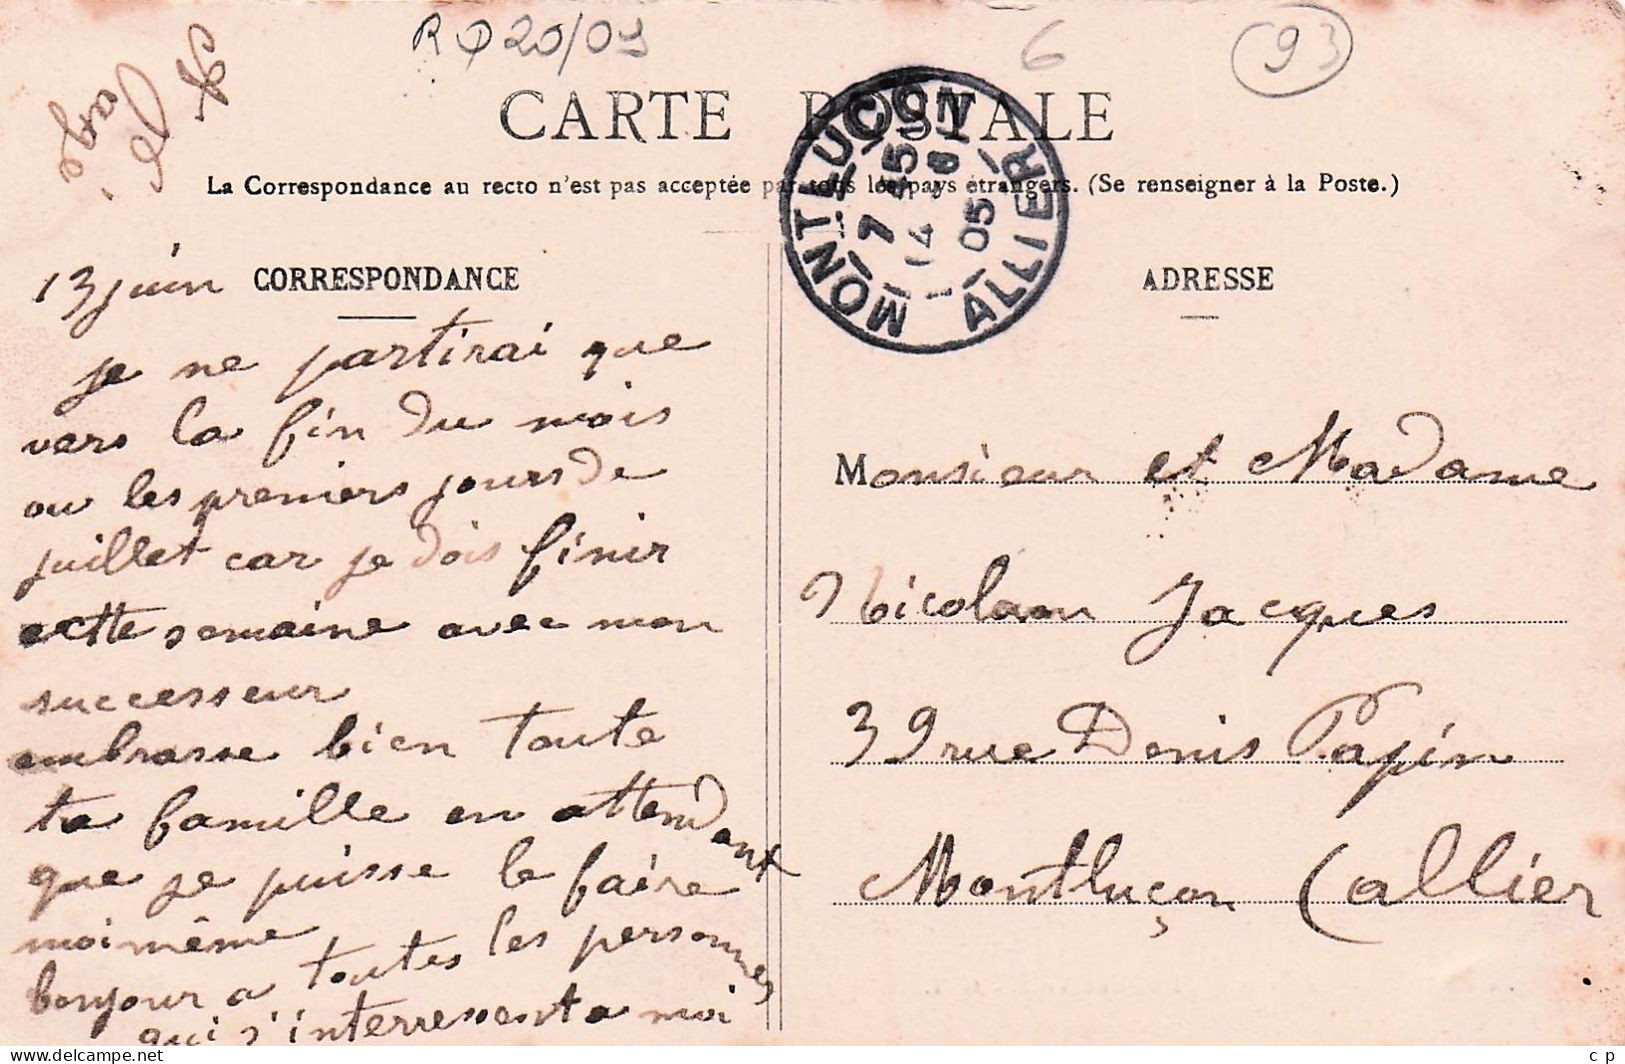 R 20/09
6
93
CARTE POSTALE
La Correspondance au recto n'est pas acceptée par tous les pays étrangers. (Se renseigner à la Poste.)
MONTLUÇON
7 45
14 6
05
ALLIER
CORRESPONDANCE
ADRESSE
13 juin
je ne partirai que
vers la fin du mois
ou les premiers jours de
juillet car je dois finir
cette semaine avec mon
successeur
embrasse bien toute
ta famille en attendant
que je puisse le faire
moi même
bonjour a toutes les personnes
qui s'interressent a moi
Monsieur et Madame
Jacques
39 rue Denis Papin
Montluçon (allier
c p